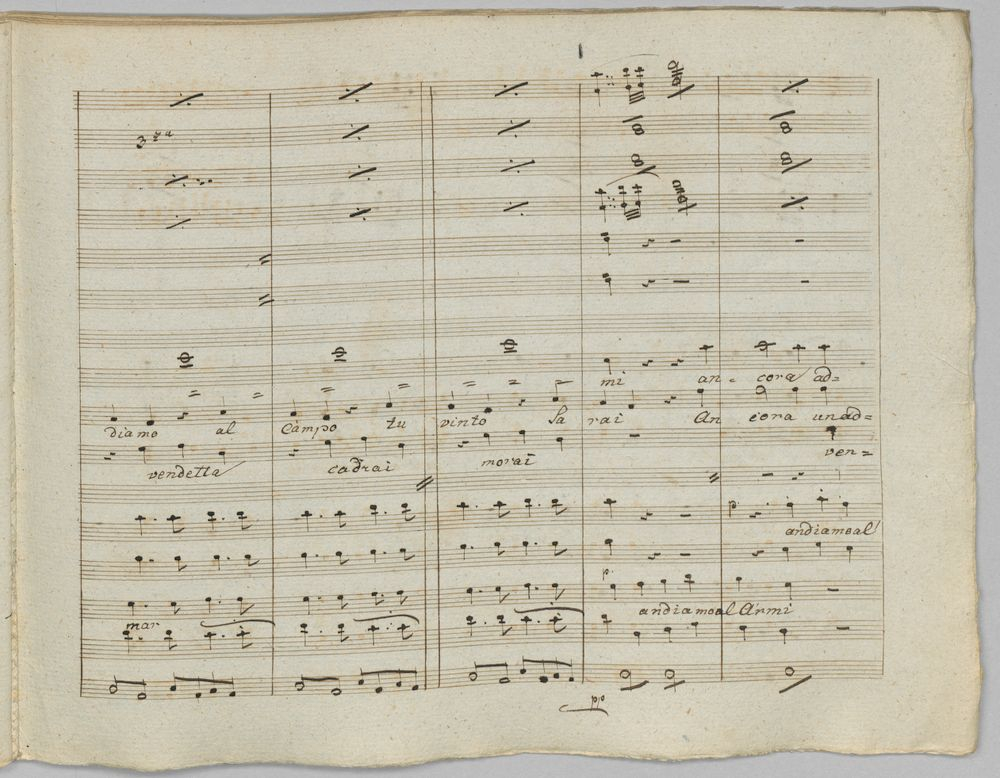 3za
mi an- cora ad=
diamo al Campo tu vinto Sa rai An cora un ad=
vendetta cadrai morai ven=
andiamo al
andiamo al Armi
mar
pp